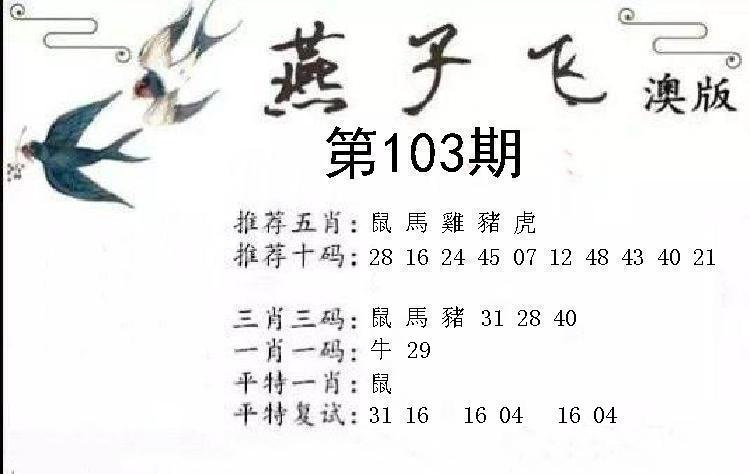 燕子飞 澳版
第103期
推荐五肖: 鼠 馬 雞 豬 虎
推荐十码: 28 16 24 45 07 12 48 43 40 21
三肖三码: 鼠 馬 豬 31 28 40
一肖一码: 牛 29
平特一肖: 鼠
平特复试: 31 16 16 04 16 04